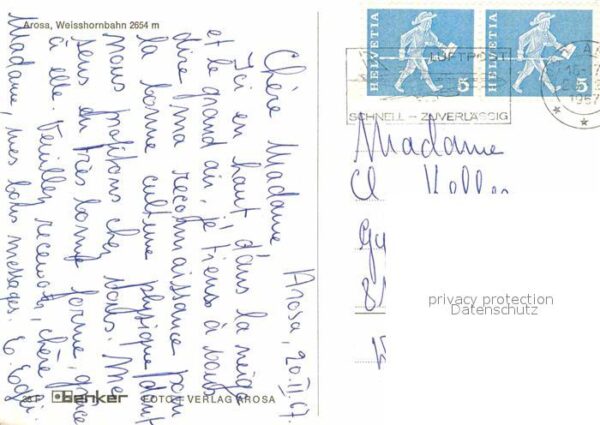 Arosa, Weisshornbahn 2654 m
Arosa, 20.II.67.
Chère Madame,
Ici en haut dans la neige
et le grand air, je tiens à vous
dire ma reconnaissance pour
la bonne culture physique dont
nous profitons chez vous. Me
sens en très bonne forme, grâce
à elle. Veuillez recevoir, chère
Madame, mes bons messages. E. Egli.
Benker FOTO + VERLAG AROSA
HELVETIA 5
HELVETIA 5
LUFTPOST
SCHNELL - ZUVERLÄSSIG
1967
Madame
Cl Keller
Gy
8
privacy protection
Datenschutz